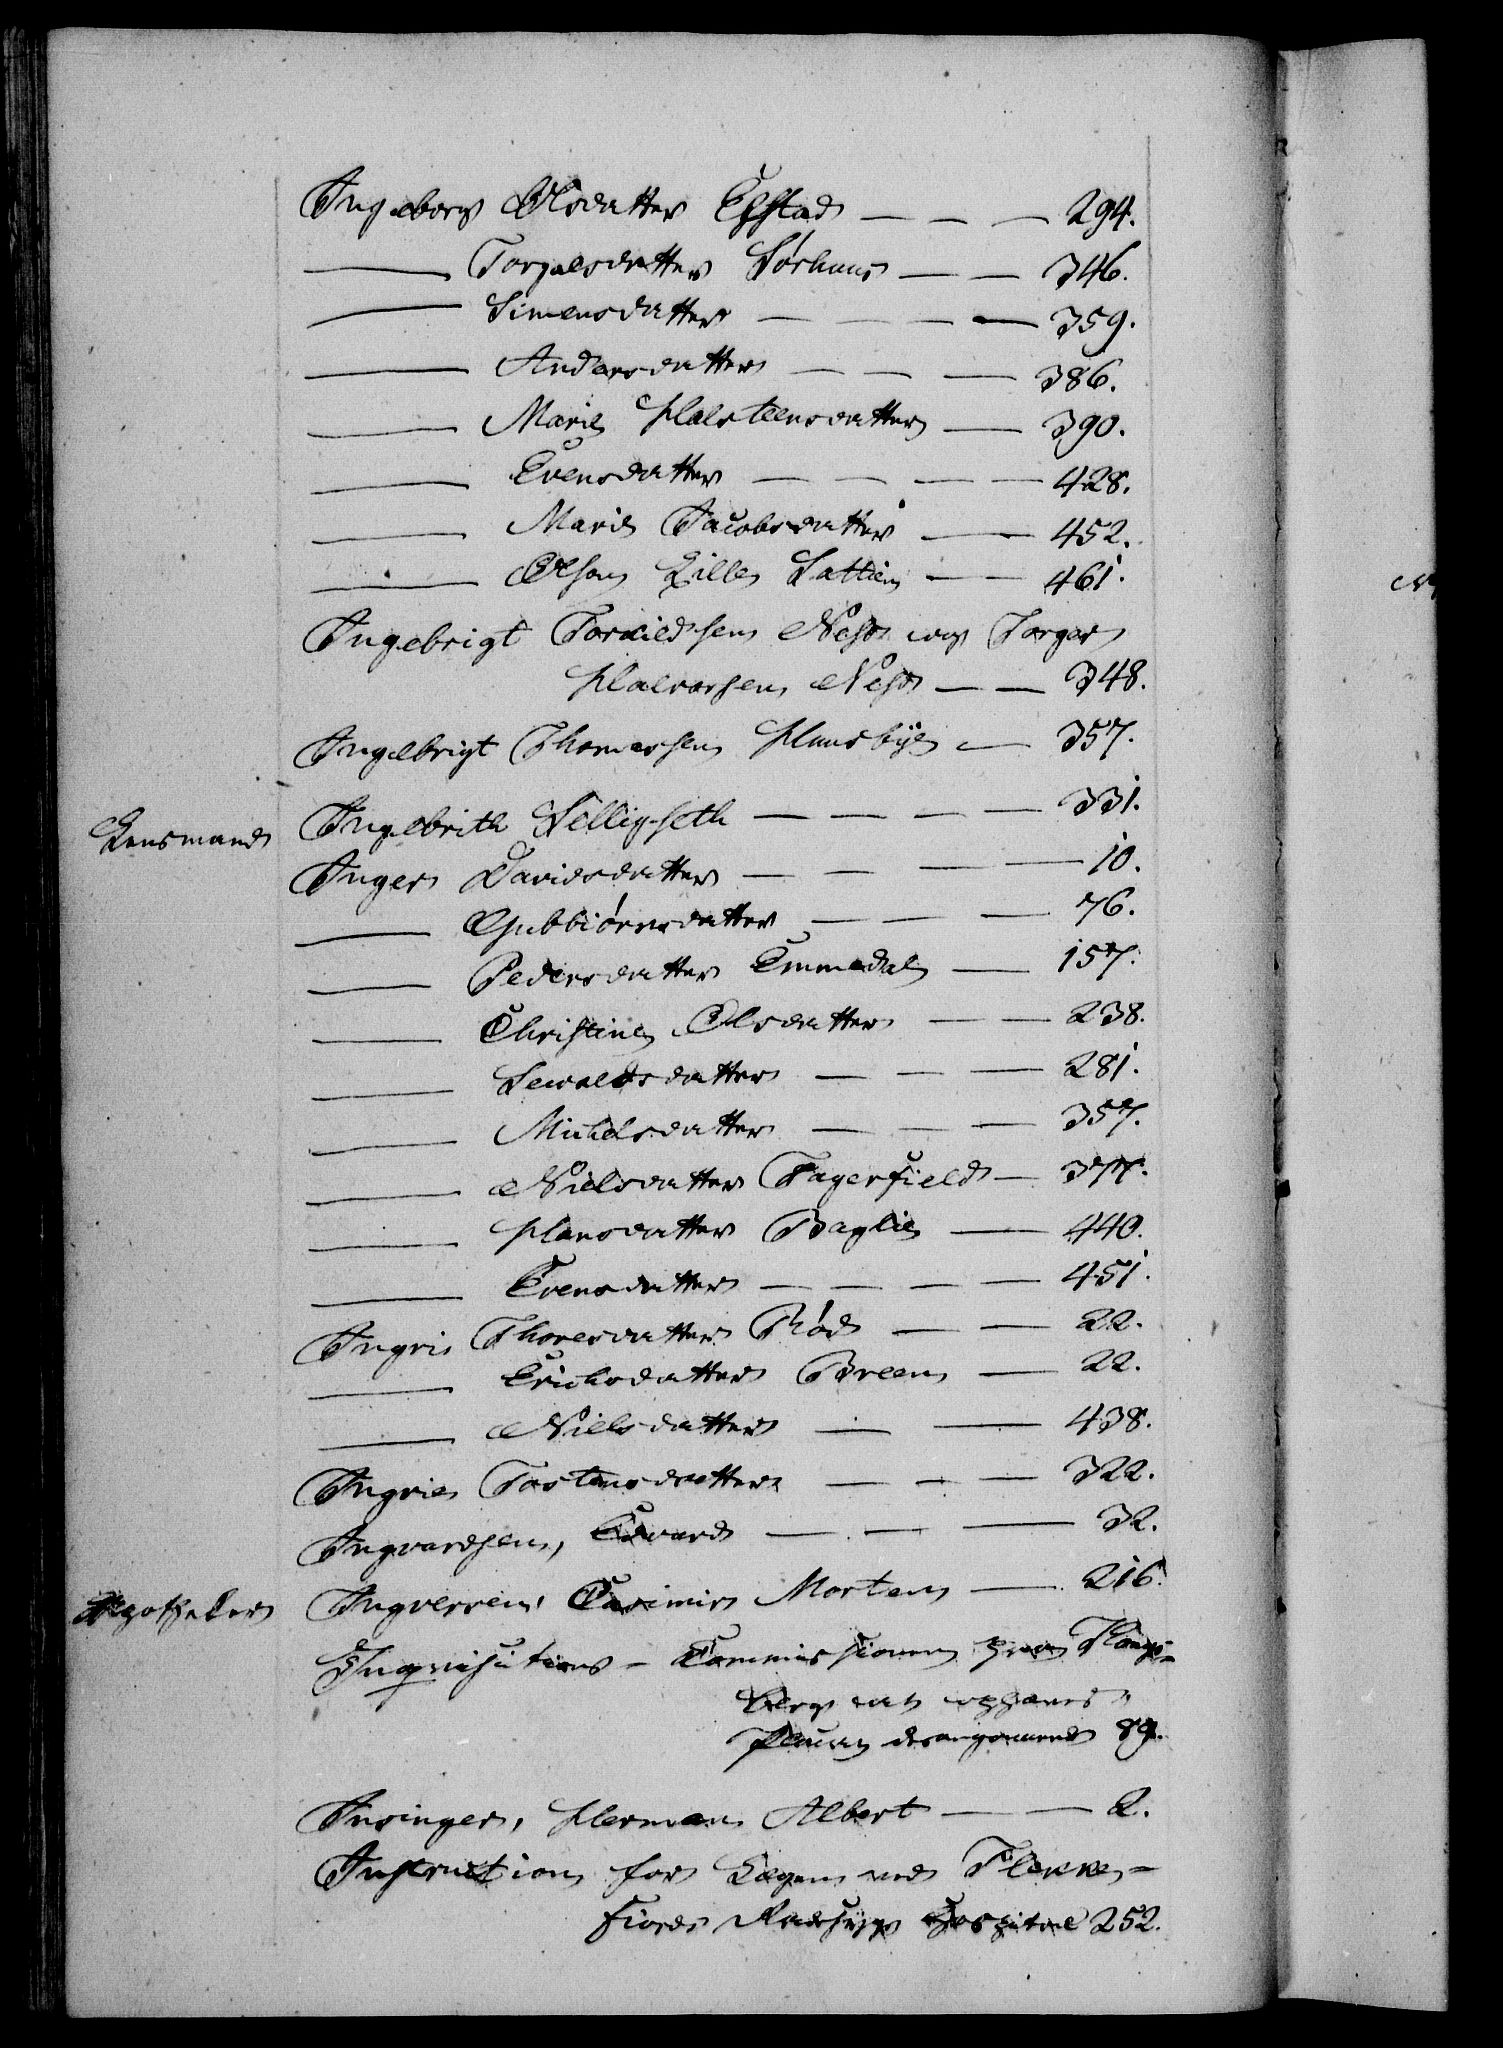 Ingeborg Olsdatter Egstad — — — 294.
— Torgalsdatter Sørhuus — — 346.
— Simensdatter — — — — 359.
— Andersdatter — — — 386.
— Marie Halsteensdatter — 390.
— Evensdatter — — — — 428.
— Marie Jacobsdatter — — 452.
— Olsen Lille Sattien — — 461.
Ingebrigt Torkildsen Næss og Torger
Halvorsen Næss — — 348.
Ingebrigt Thomesen Huusbye — 357.
Lensmand Ingebrith Selligseth — — — — 331.
Inger Davidsdatter — — — — 10.
— Gubbiørnsdatter — — — 76.
— Pedersdatter Emmedal — 157.
— Christine Olsdatter — — 238.
— Sewaldsdatter — — — 281.
— Michelsdatter — — — 357.
— Nielsdatter Fagerfield — 377.
— Hansdatter Baglie — 440.
— Evensdatter — — — — 451.
Ingri Thoresdatter Röd — — 22.
— Erichsdatter Breen — 22.
— Nielsdatter — — 438.
Ingrie Tostensdatter — — — 322.
Ingvardsen, Edvard — — — 32.
Apotheker Ingversen, Casimir Mortens — 216.
Inqvisitions-Commissionen paa Kongs-
berg at ophæves
89.
Insinger, Herman Albert — — 2.
Instruction for Lægen ved Flekke-
fiords Radesyge Hospital 252.